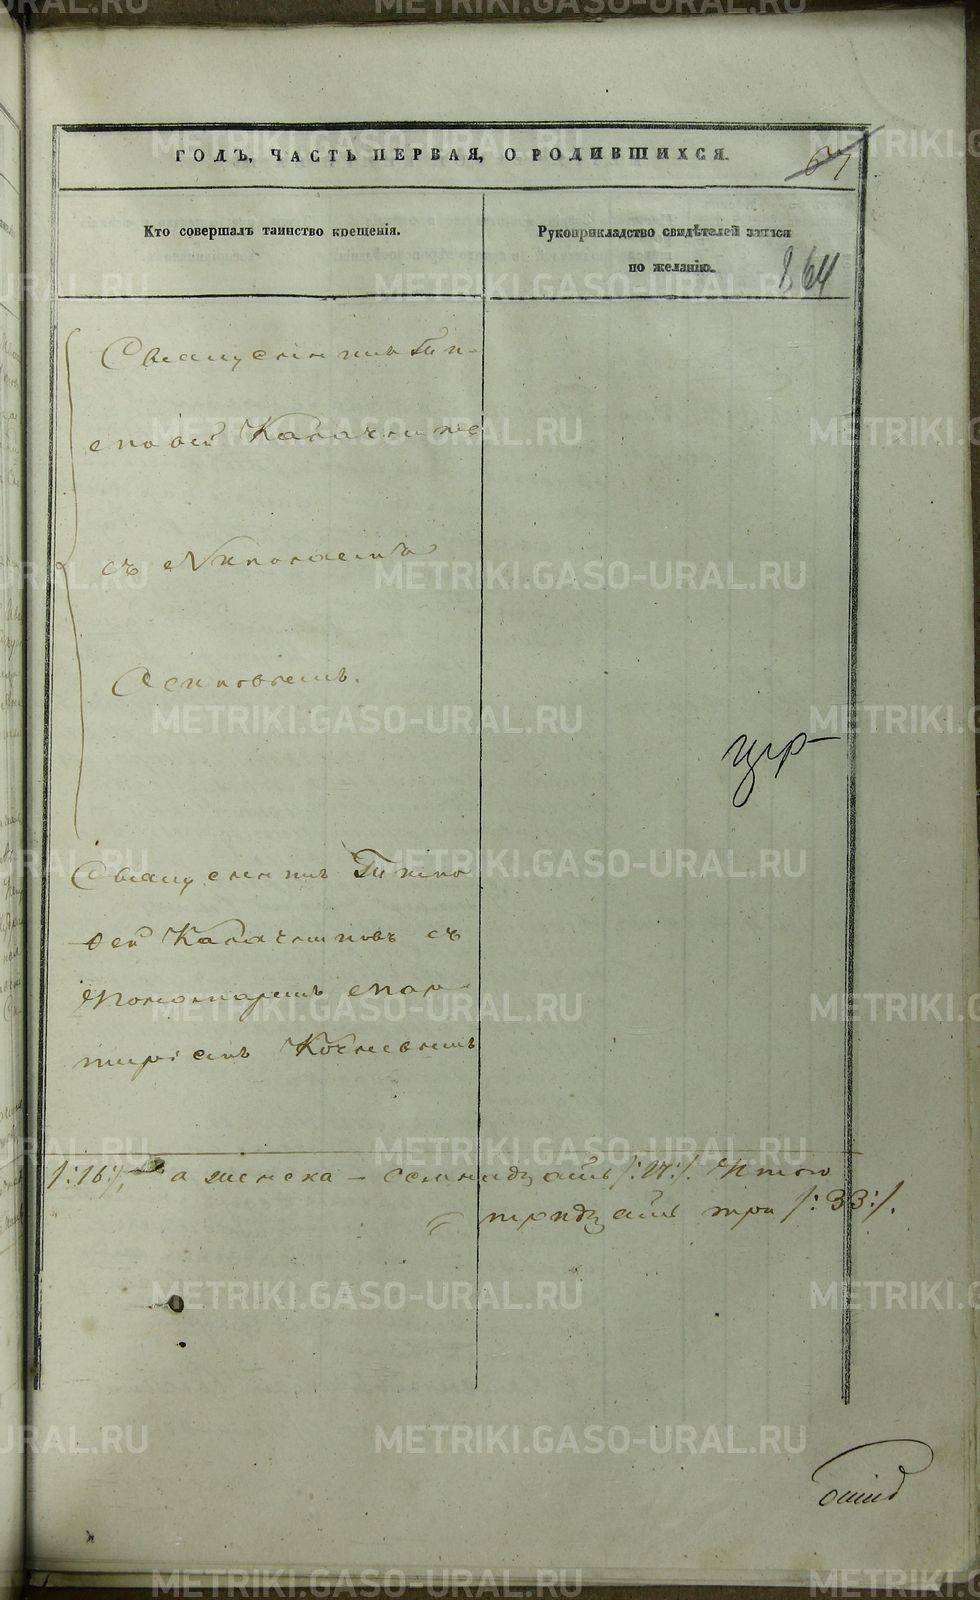 ГОДЪ, ЧАСТЬ ПЕРВАЯ, О РОДИВШИХСЯ.
67
Кто совершалъ таинство крещенія.
Рукоприкладство свидѣтелей записи
по желанію.
864
Священникъ Тим-
оѳей Калачников
съ
Осиповымъ.
Священникъ Тимо
ѳей Калачниковъ съ
Пономаремъ
Кочневымъ
/:16:/, а женска – семнадцать /:17:/. Итого
тридцать три /:33:/.
METRIKI.GASO-URAL.RU